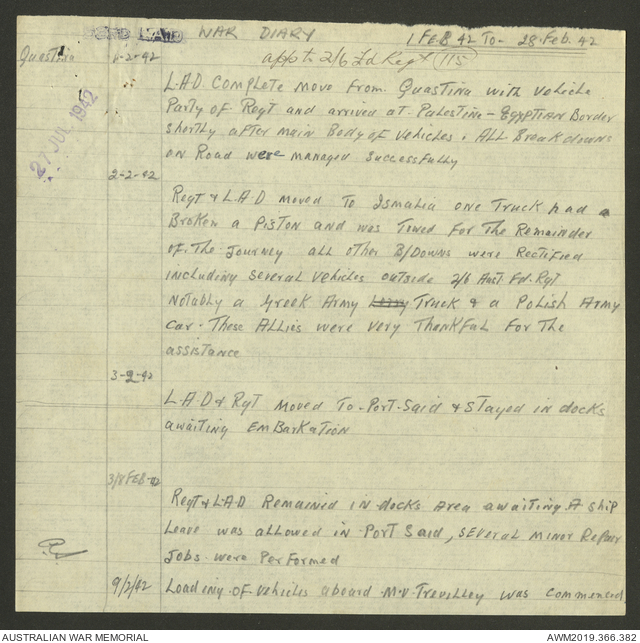 LAD WAR DIARY 1 FEB 42 To- 28-Feb. 42
appt 2/6 Fd Regt (115)
Quastina 1-2-42
27 JUL 1942
L.A.D. Complete move from Quastina with vehicle
Party of Regt and arrived at Palestine - Egyptian Border
shortly after main Body of vehicles. ALL Breakdowns
on Road were managed successfully
2-2-42
Regt & L.A.D moved To Ismalia one Truck had a
Broken a Piston and was Towed for The Remainder
of. The Journey all other B/Downs were Rectified
including several vehicles outside 2/6 Aust. Fd. Rgt
Notably a Greek Army Truck & a Polish Army
Car. These Allies were very Thankful for The
assistance
3-2-42
L.A.D & Rgt moved To-Port-Said & stayed in docks
awaiting EmBarkation
3/8 FEB-42
Regt & L.A.D Remained in docks area awaiting A ship
Leave was allowed in Port Said, several minor Repair
Jobs were Performed
9/2/42 Loading of vehicles aboard M.V. Trevilley was commenced
AUSTRALIAN WAR MEMORIAL AWM2019.366.382